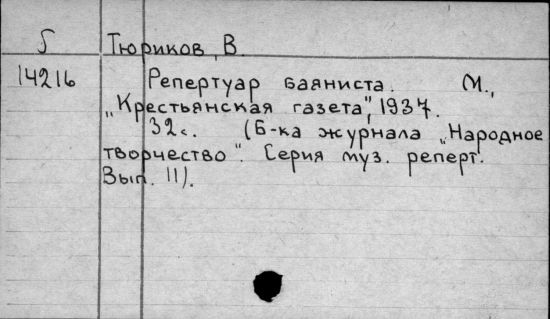 Б Тюриков, В.
14216 Репертуар баяниста. М.,
„Крестьянская газета", 1937.
32с. (Б-ка журнала „Народное
творчество". Серия муз. реперт.
Вып. II).